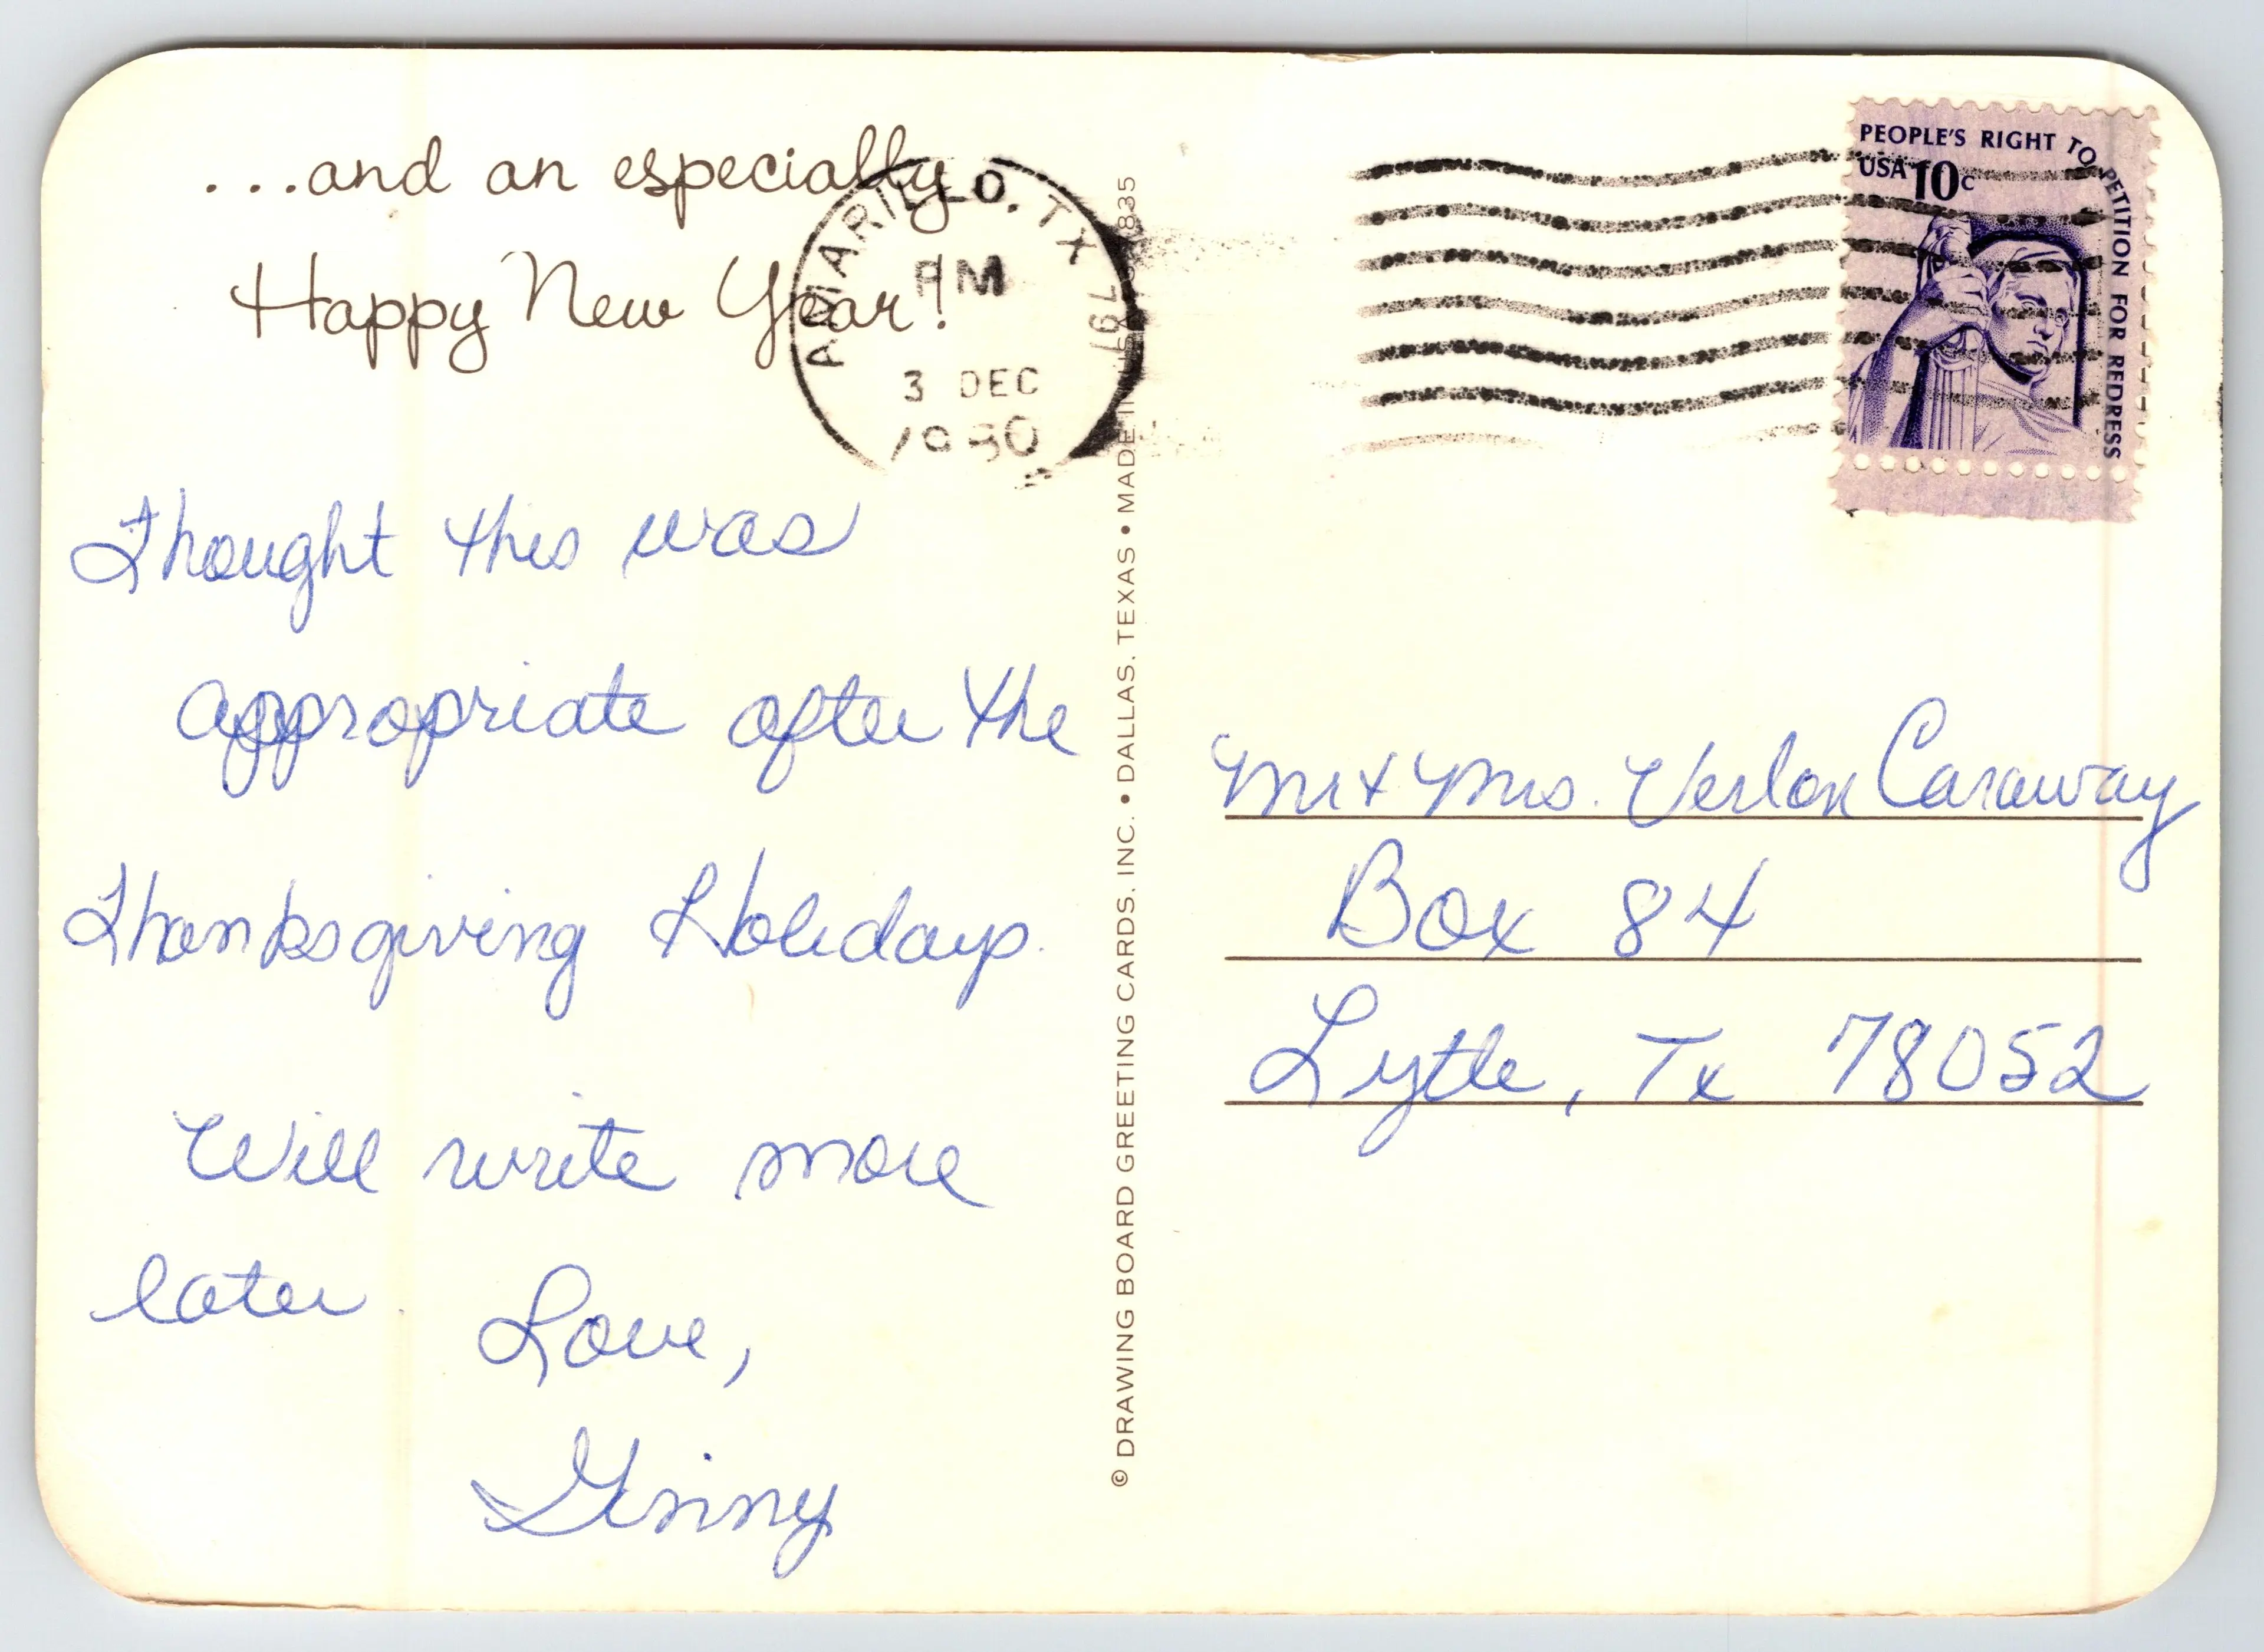 ...and an especially
Happy New Year!
AMARILLO, TX
PM
3 DEC
1980
791
PEOPLE'S RIGHT TO PETITION FOR REDRESS
USA 10c
Thought this was
appropriate after the
Thanksgiving Holidays.
Will write more
later.
Love,
Ginny
© DRAWING BOARD GREETING CARDS, INC. • DALLAS, TEXAS • MADE IN
835
Mr + Mrs. Verlon Caraway
Box 84
Lytle, Tx 78052